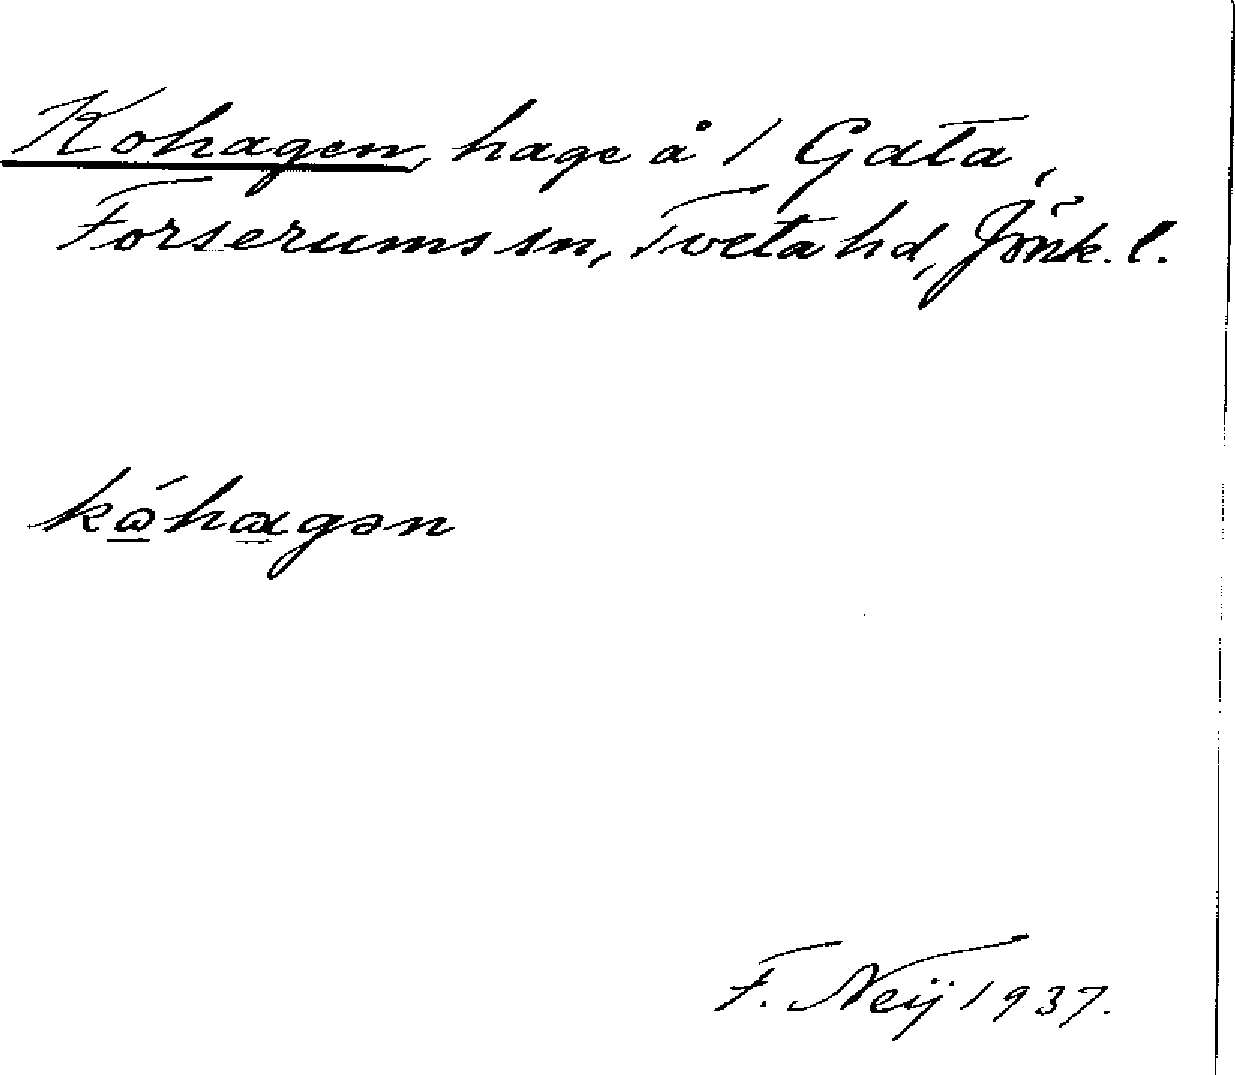 Kohagen, hage å 1 Gata,
Forserums sn, Tveta hd, Jönk. l.
kɷ́hɑgən
F. Neij 1937.